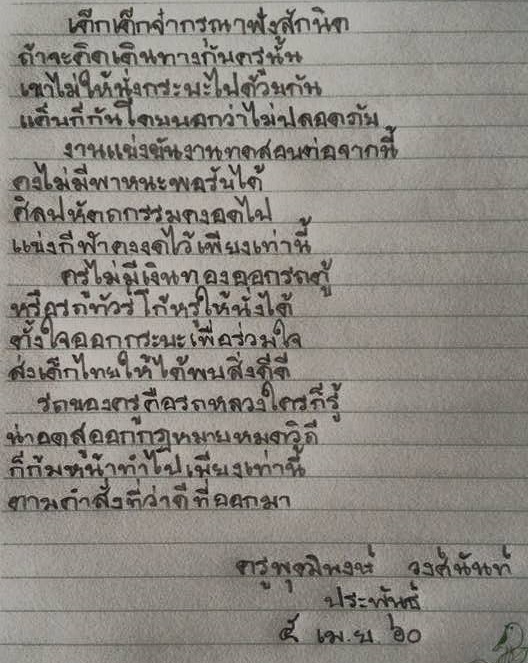 เด็กเด็กจ๋ากรุณาฟังสักนิด
ถ้าจะคิดเดินทางกับครูนั้น
เขาไม่ให้นั่งกระบะไปด้วยกัน
แค็บก็กันโดยบอกว่าไม่ปลอดภัย
งานแข่งขันงานทดสอบต่อจากนี้
คงไม่มีพาหนะพอรับได้
ศิลปหัตถกรรมคงอดไป
แข่งกีฬาคงงดไว้เพียงเท่านี้
ครูไม่มีเงินทองออกรถตู้
หรือรถทัวร์โก้หรูให้นั่งได้
ตั้งใจออกกระบะเพื่อร่วมใจ
ส่งเด็กไทยให้ได้พบสิ่งดีดี
รถของครูคือรถหลวงใครก็รู้
น่าอดสูออกกฎหมายหมดวิถี
ก็ก้มหน้าทำไปเพียงเท่านี้
ตามคำสั่งที่ว่าดีที่ออกมา
ครูพุฒิพงษ์ วงศ์นันท์
ประพันธ์
๕ เม.ย. ๖๐